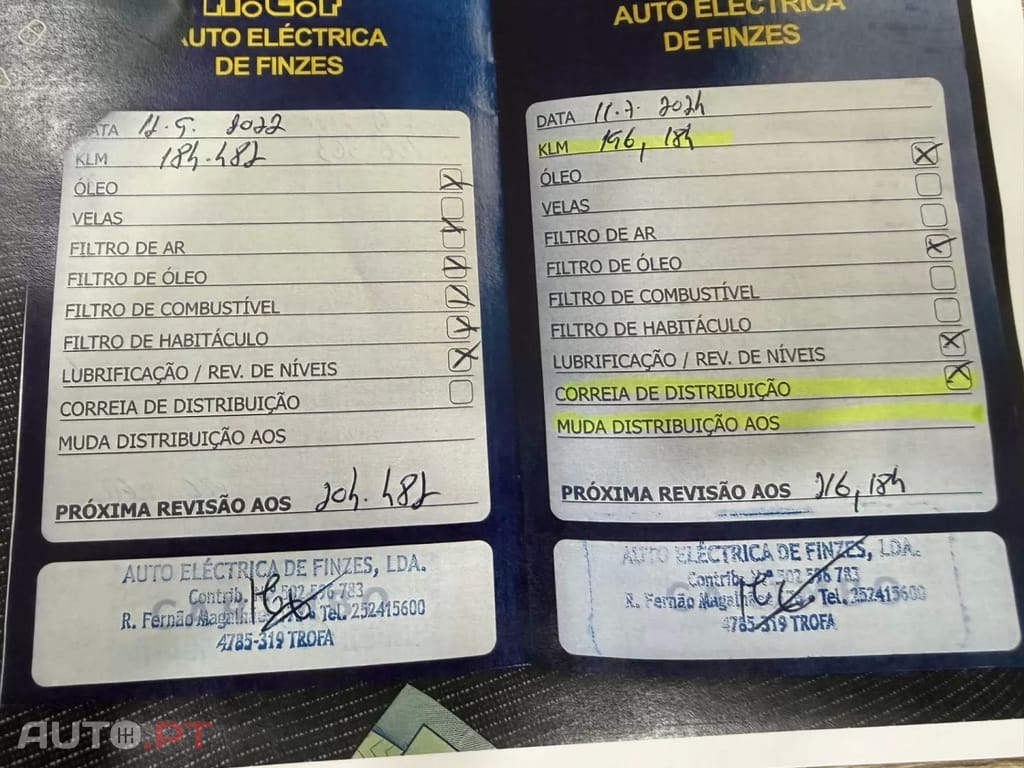 AUTO ELÉCTRICA
DE FINZES
DATA 12.9.2022
KLM 184.482
ÓLEO
VELAS
FILTRO DE AR
FILTRO DE ÓLEO
FILTRO DE COMBUSTÍVEL
FILTRO DE HABITÁCULO
LUBRIFICAÇÃO / REV. DE NÍVEIS
CORREIA DE DISTRIBUIÇÃO
MUDA DISTRIBUIÇÃO AOS
PRÓXIMA REVISÃO AOS 204.482
AUTO ELÉCTRICA DE FINZES, LDA.
Contrib. 502 596 783
R. Fernão Magalhães Tel. 252415600
4785-319 TROFA
AUTO ELÉCTRICA
DE FINZES
DATA 11.7.2024
KLM 196,184
ÓLEO
VELAS
FILTRO DE AR
FILTRO DE ÓLEO
FILTRO DE COMBUSTÍVEL
FILTRO DE HABITÁCULO
LUBRIFICAÇÃO / REV. DE NÍVEIS
CORREIA DE DISTRIBUIÇÃO
MUDA DISTRIBUIÇÃO AOS
PRÓXIMA REVISÃO AOS 216,184
AUTO ELÉCTRICA DE FINZES, LDA.
Contrib. Nº 502 596 783
R. Fernão Magalhães Tel. 252415600
4785-319 TROFA
AUTO.PT